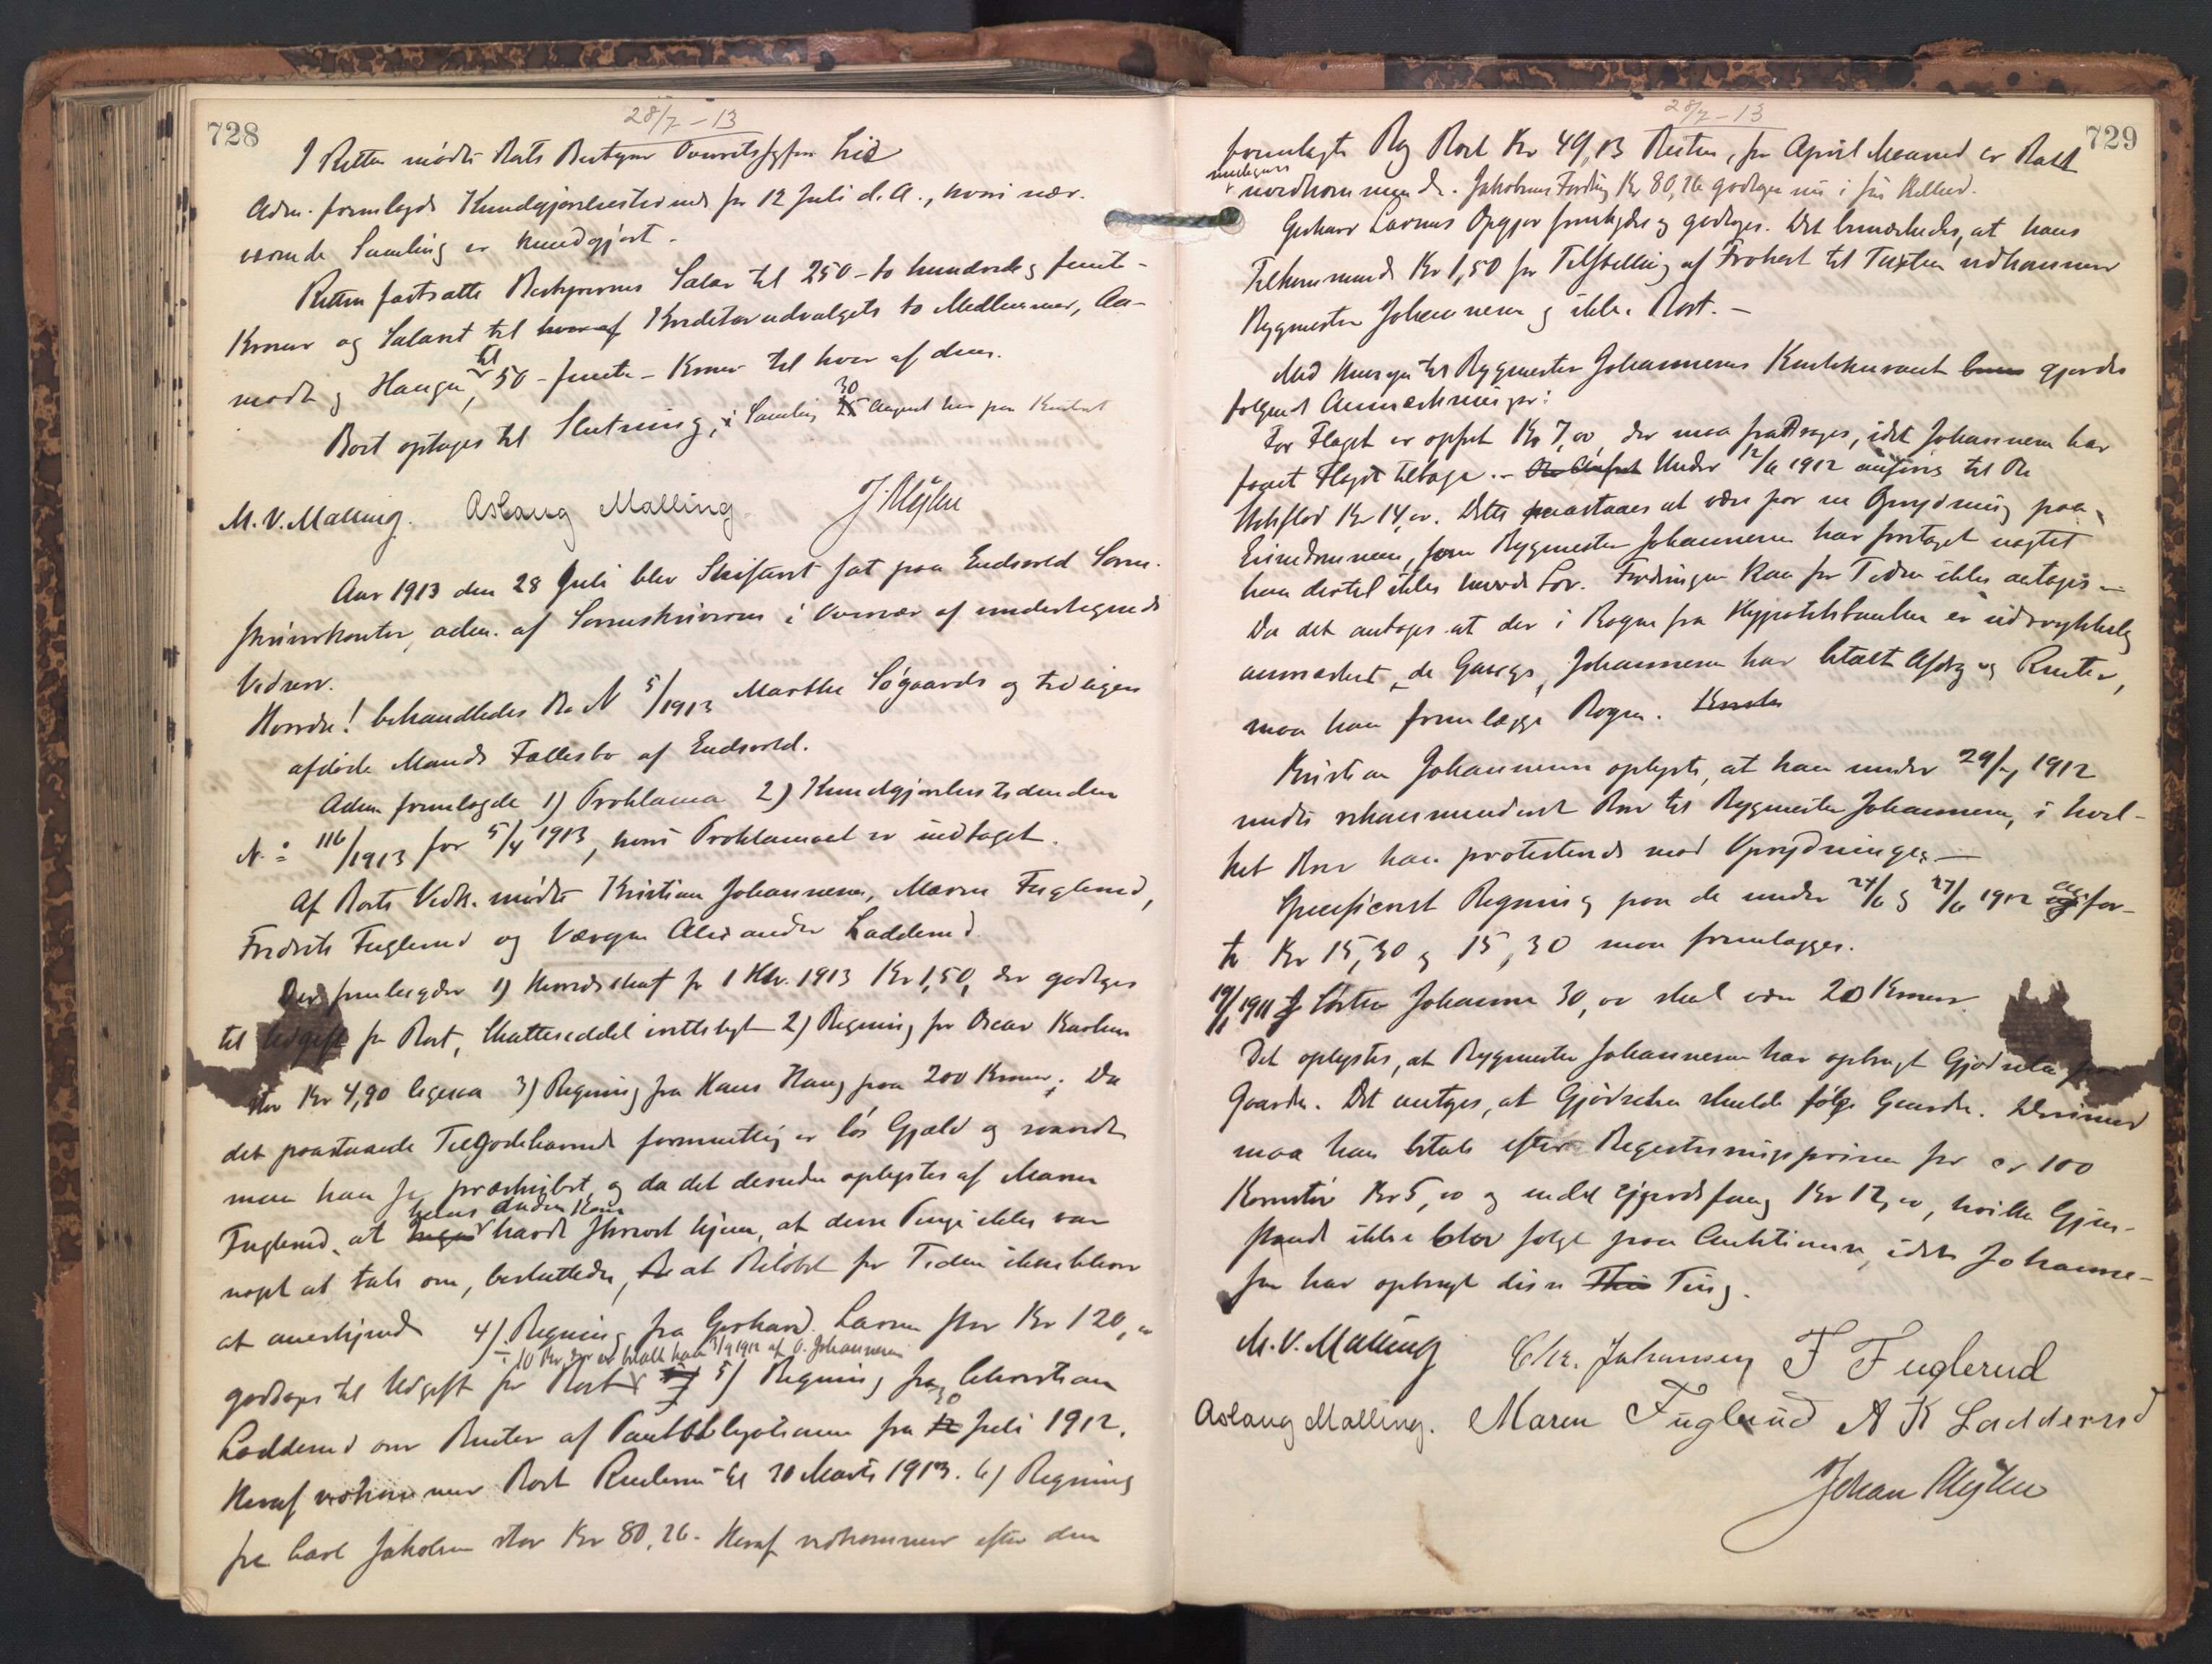 728
28/7 - 13
I Retten mødte Boets Bestyrer Overretssagfører Lie
Adm. fremlagde Kundgjørelsestidende for 12 Juli d.A., hvori nær-
værende Samling er kundgjort.
Retten fastsatte Bestyrerens Salær til 250 - to hundrede og femti -
Kroner og Salæret til hver af Kreditorudvalgets to Medlemmer, Aa-
modt og Haugen, til 50 - femti - Kroner til hver af dem.
Boet optages til Slutning, i Samling 25 30 August her paa Kontoret
M. V. Malling. Aslaug Malling.
Aar 1913 den 28 Juli blev Skifteret sat paa Eidsvold Soren-
skriverkontor, adm. af Sorenskriveren i Overvær af undertegnede
Vidner.
Herved! behandledes Bo N 5/1913 Marthe Søgaards og tidligere
afdøde Mands Fællesbo af Eidsvold.
Adm fremlagde 1) Proklama 2) Kundgjørelsestidenden
N: 116/1913 for 5/4 1913, hvori Proklamaet er indtaget.
Af Boets Vedk. mødte Kristian Johannesen, Maren Fuglerud,
Fredrik Fuglerud og Værgen Alexander Ladderud
Der fremlagdes 1) Herredsskat for 1 Halv. 1913 Kr 1,50, der godtages
til Udgift for Boet, Skatteseddel irettelagt 2) Regning fra Oscar Karlsen
stor Kr 4,90 ligesaa 3) Regning fra Hans Haug paa 200 Kroner. Da
det paastaaede Tilgodehavende formentlig er løs Gjæld og saavidt
man kan se præskriberet, og da det desuden oplystes af Maren
Fuglerud, at hans anden Kone havde skrevet hjem, at disse Penge ikke var
noget at tale om, besluttedes, at Beløbet for Tiden ikke blev
at anerkjende 4) Regning fra Gerhard Larsen stor Kr 120,00
÷ 10 Kr der er betalt ham 3/9 1912 af O. Johannesen
godtages til Udgift for Boet 5) Regning fra Christian
Ladderud om Renter af Pantobligationen fra 12 30 Juli 1912.
Heraf vedkommer Boet Renterne til 20 Marts 1913. 6) Regning
fra Carl Jakobsen stor Kr 80,26. Heraf vedkommer efter den
729
28/7 - 13
fremlagte Reg Boet Kr 49,13 Resten, for April Maaned er Boet
uvedkommende. Jakobsens Fordring Kr 80,26 godtages nu i sin Helhed.
Gerhard Larsens Opgjør fremlagdes og godtoges. Det bemærkedes, at hans
Tilkommende Kr 1,50 for Tilstelling af Frokost til Taxten vedkommer
Bygmester Johannesen og ikke Boet. -
Med Hensyn til Bygmester Johannesens Kontokurant gjordes
følgende Anmerkninger:
For Flaget er opført Kr 7,00 der maa fradrages, idet Johannesen har
faaet Flaget tilbage. - Under 12/6 1912 anføres til Ole
Holsflod Kr 14,00. Dette paastaaes at være for en Oprydning paa
Eiendommen, som Bygmester Johannesen har foretaget uagtet
han dertil ikke havde Lov. Fordringen kan for Tiden ikke antages -
Da det antages at der i Bogen fra Hypotekbanken er udtrykkelig
anmerket, de Gange, Johannesen har betalt Afdrag og Renter,
maa han fremlægge Bogen.
Kristian Johannesen oplyste, at han under 29/7 1912
sendte rekommenderet Brev til Bygmester Johannesen, i hvil-
ket Brev han protesterede mod Oprydningen. -
Specificeret Regning paa de under 24/6 og 27/6 1912 opfør-
te Kr 15,30 og 15,30 maa fremlægges.
19/1 1911 Søster Johanne 30,00 skal være 20 Kroner
Det oplystes, at Bygmester Johannesen har opbrugt Gjødselen paa
Gaarden. Det antages, at Gjødselen skulde følge Gaarden. Derimod
maa han betale efter Registreringsprisen for ca 100
Kornstør Kr 5,00 og endel Gjerdsfang Kr 12,00, hvilke Gjen-
stande ikke blev solgt paa Auktionen, idet Johanne-
sen har opbrugt disse Ting.
M. V. Malling Chr. Johansen F Fuglerud
Aslaug Malling. Maren Fuglerud A K Ladderud